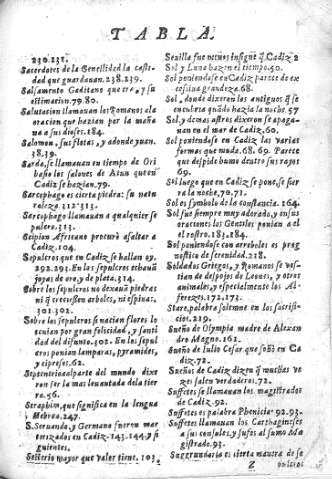 TABLA.
230.231.
Sacerdotes de la Gentilidad la castidad que guardauan.238.239.
Salsamento Gaditano que era, y su
estimacion.79.80.
Salutacion llamauan los Romanos a la
oracion que hazian por la mañana
a sus dioses.184.
Salomon, sus flotas, y adonde yuan.
38.39.
Sarda, se llamauan en tiempo de Ori
basio los salones de Atun que en
Cadiz se hazian.79.
Sarcophago es cierta piedra: su natu
raleza.312.313.
Sarcophago llamauan a qualquier se
pulcro.313.
Scipion Africano procurò assaltar a
Cadiz.104.
Sepulcros que en Cadiz se hallan 69.
292.293. En los sepulcros echauã
joyas de oro, y de plata.314.
Sobre los sepulcros no dexauã piedras
ni q̃ creciessen arboles, ni espinas.
301.302.
Sobre los sepulcros se nacian flores lo
tenian por gran felicidad, y santi
dad del difunto.302. En los sepul
cros ponian lamparas, pyramides,
y cipreses.62.
Septentrional parte del mundo dixe
ron ser la mas leuantada de la tier
ra.56.
Seraphim, que significa en la lengua
Hebrea.247.
S. Seruando, y Germano fueron mar
tirizados en Cadiz.143.144. y si
guientes.
Silicrio mayor que valor tiene.103.
Sevilla fue
Sol y Luna hazen el tiempo.50.
Sol poniendose en Cadiz parece de ex
cessiua grandeza.68.
Sol, donde dixeron los antiguos q̃ se
encubria quãdo hazia la noche.57
Sol, y demas astros dixeron se apaga
uan en el mar de Cadiz.60.
Sol poniendose en Cadiz las varias
formas que muda.68. 69. Parece
que despide humo de sus rayos
69.
Sol luego que en Cadiz se pone, se cier
ra la noche.70.71.
Sol es symbolo de la constancia. 164.
Sol fue siempre muy adorado, y en sus
oraciones los Gentiles ponian a el
el rostro.183.184.
Sol poniendose con arreboles es prog
nostico de serenidad.218.
Soldados Griegos, y Romanos se ves
tian de despojos de Leones, y otros
animales, y especialmente los Al
ferezes.172.173.
Stare, palabra solemne en los sacrifi
cios.229.
Sueño de Olympia madre de Alexan
dro Magno.162.
Sueño de Julio Cesar que soñò en Ca
diz.72.
Sueños de Cadiz dizen q̃ muchas ve
zes salen verdaderos.72.
Suffetes se llamauan los magistrados
de Cadiz.92.
Suffetes es palabra Phenicia.92.93.
Suffetes llamauan los Carthagineses
a sus consules, y jufes al sumo Ma
gistrado.93.
Suggrundaria es: cierta manera de se
Z